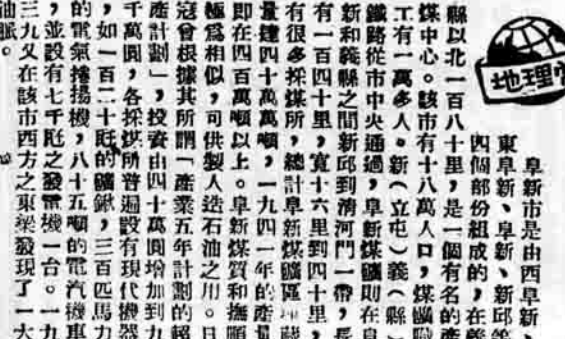 地理
阜新市是由西阜新、
東阜新、阜新、新邱等
四個部份組成的,在義
縣以北一百八十里,是一個有名的產
煤中心。該市有十八萬人口,煤礦職
工有一萬多人。新(立屯)義(縣)
鐵路從市中央通過,阜新煤礦則在阜
新和義縣之間新邱到清河門一帶,長
有一百四十里,寬十六里到四十里,
有很多採煤所,總計阜新煤礦區埋藏
量達四十萬萬噸,一九四一年的產量
即在四百萬噸以上。阜新煤質和撫順
極爲相似,可供製人造石油之用。日
寇曾根據其所謂「產業五年計劃的超
產計劃」,投資由四十萬圓增加到九
千萬圓,各採煤所普遍設有現代機器
,如一百二十瓩的礦鍬,三百匹馬力
的電氣捲揚機,八十五噸的電汽機車
,並設有七千瓩之發電機一台。一九
三九又在該市西方之東梁發現了一大
油脈。